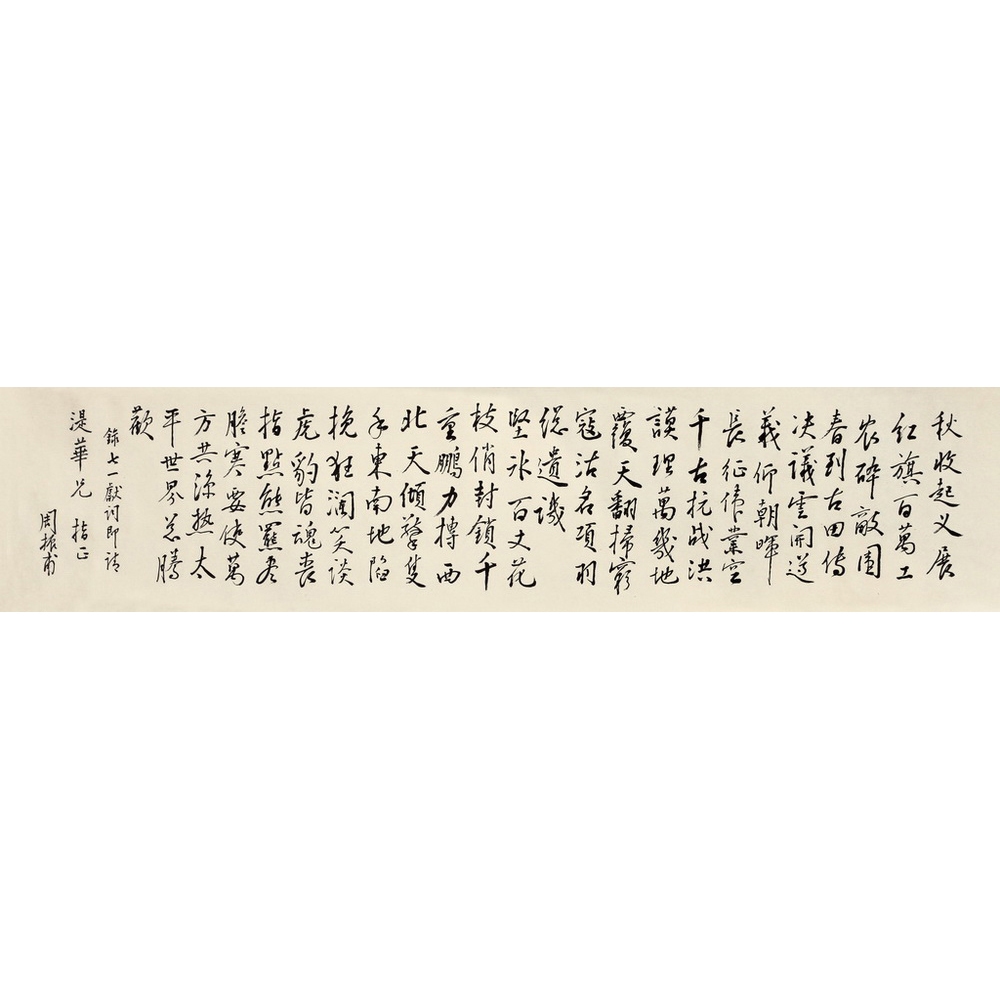 秋收起义展
红旗百萬工
农碎敵围
春到古田传
决議雲開遵
義仰朝暉
長征偉業空
千古抗战洪
謨理萬幾地
覆天翻掃窮
寇沽名項羽
總遺譏
堅冰百丈花
枝俏封鎖千
重鵬力摶西
北天傾擎隻
手東南地陷
挽狂澜笑談
虎豹皆魂丧
指點熊羆盡
膽寒要使萬
方共涼热太
平世界总腾
歡
錄七一獻词即请
湜華兄 指正
周振甫